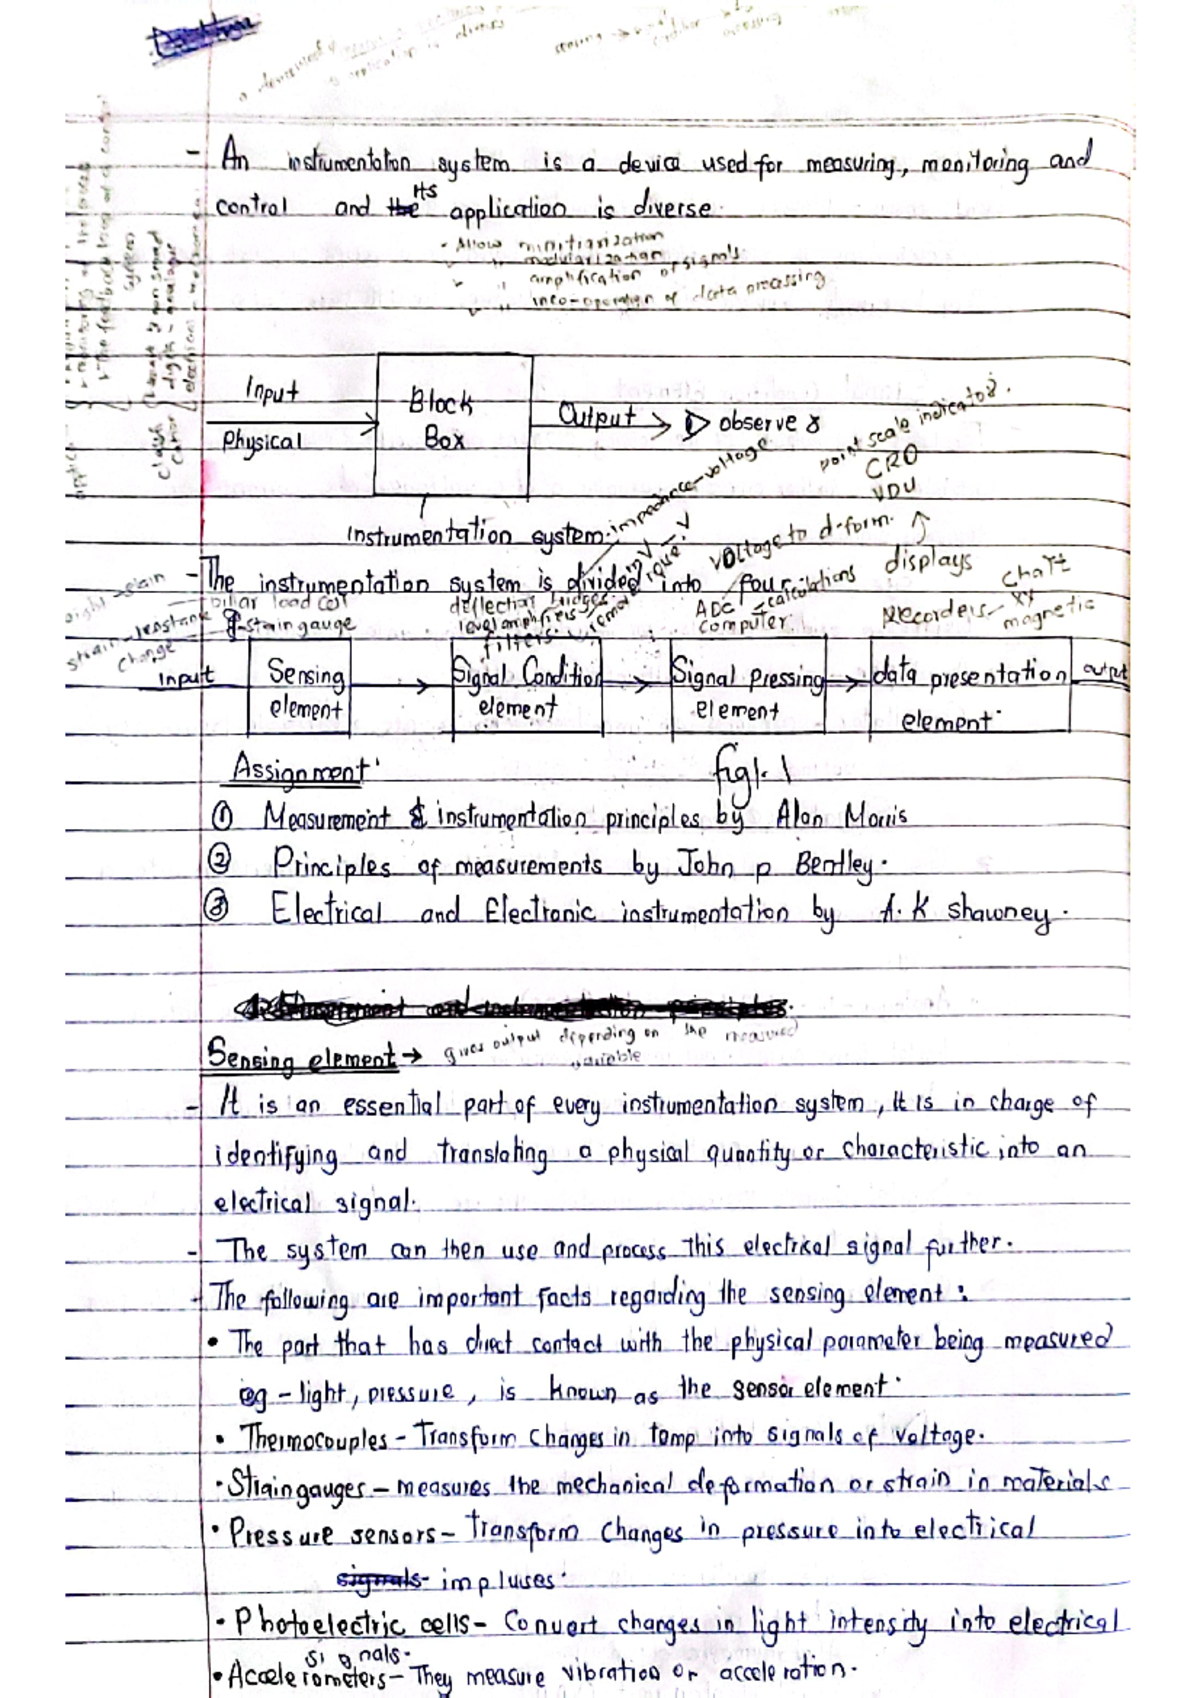 - An instrumentation system is a device used for measuring, monitoring and
control and the its application is diverse.
- Allow minitiarization
" modularization
" amplification of signals
" inco-operation of data processing
Input
Physical
Block
Box
Output
observer
point scale indicator.
CRO
VDU
Instrumentation system.
impedance-voltage
- The instrumentation system is divided into four
voltage to d-form.
displays
calculations
pillar load cell
strain gauge
deflection bridges
level amplifiers
filters.
ADC
computer
Recorders
chart
xy
magnetic
change
Input
Sensing
element
Signal Condition
element
Signal Pressing
element
data presentation
element
output
Assignment
fig 1.1
① Measurement & instrumentation principles by Alan Morris
② Principles of measurements by John p Bentley.
③ Electrical and Electronic instrumentation by A. K shawney.
Sensing element → gives output depending on the measured
variable
- It is an essential part of every instrumentation system, It is in charge of
identifying and translating a physical quantity or characteristic into an
electrical signal.
- The system can then use and process this electrical signal further.
- The following are important facts regarding the sensing element:
• The part that has direct contact with the physical parameter being measured
eg - light, pressure, is known as the sensor element.
• Thermocouples - Transform changes in temp into signals of voltage.
• Strain gauges - measures the mechanical deformation or strain in materials
• Pressure sensors - Transform changes in pressure into electrical
signals impluses.
• Photoelectric cells - Convert changes in light intensity into electrical
signals.
• Accelerometers - They measure vibration or acceleration.